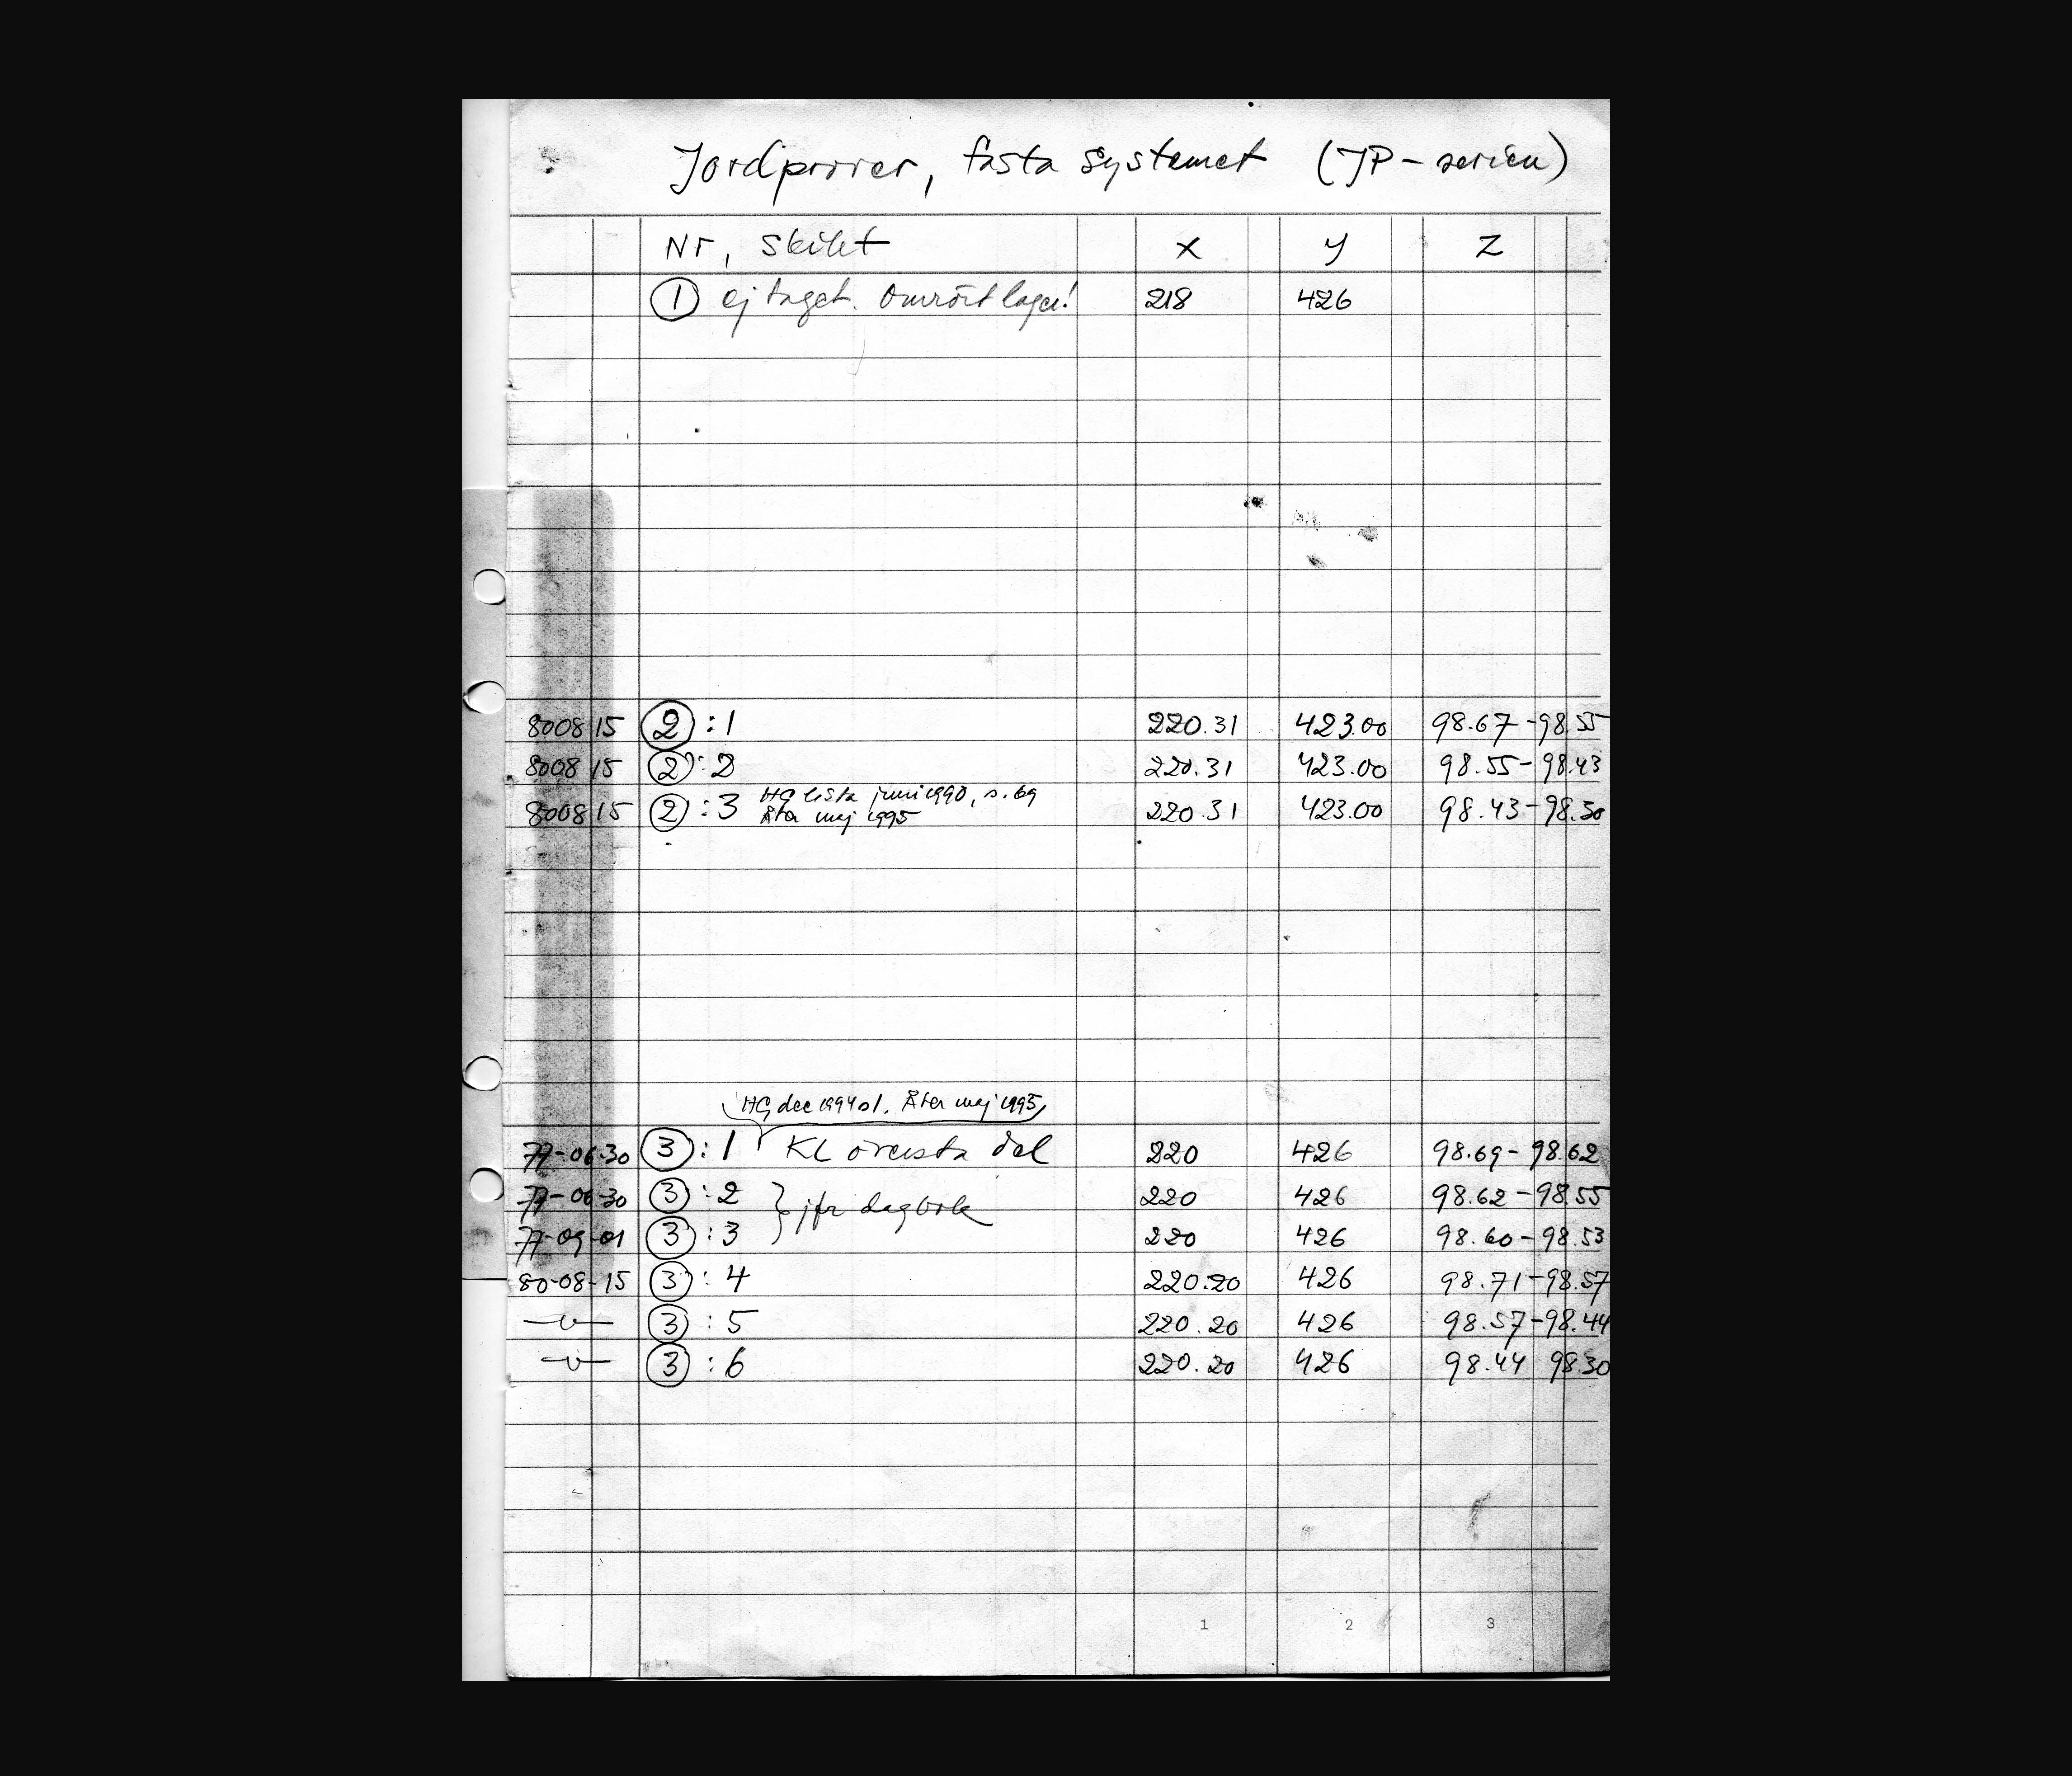 Jordprover, fasta systemet (JP-serien)
Nr, skikt X Y Z
1 ej taget. Omrört lager! 218 426
800815 2 :1 220.31 423.00 98.67-98.55
800815 2 :2 220.31 423.00 98.55-98.43
800815 2 :3 HG lista juni 1990, s. 69 220.31 423.00 98.43-98.30
Åter maj 1995
HG dec 1994 s1. Åter maj 1995
77-06-30 3 :1 KL översta del 220 426 98.69-98.62
77-06-30 3 :2 220 426 98.62-98.55
jfr dagbok
77-09-01 3 :3 220 426 98.60-98.53
80-08-15 3 :4 220.20 426 98.71-98.57
—"— 3 :5 220.20 426 98.57-98.44
—"— 3 :6 220.20 426 98.44 98.30
1 2 3